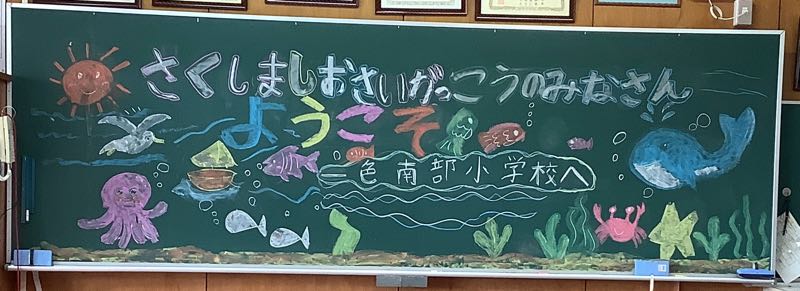 さくしましおさいがっこうのみなさん
ようこそ
一色南部小学校へ